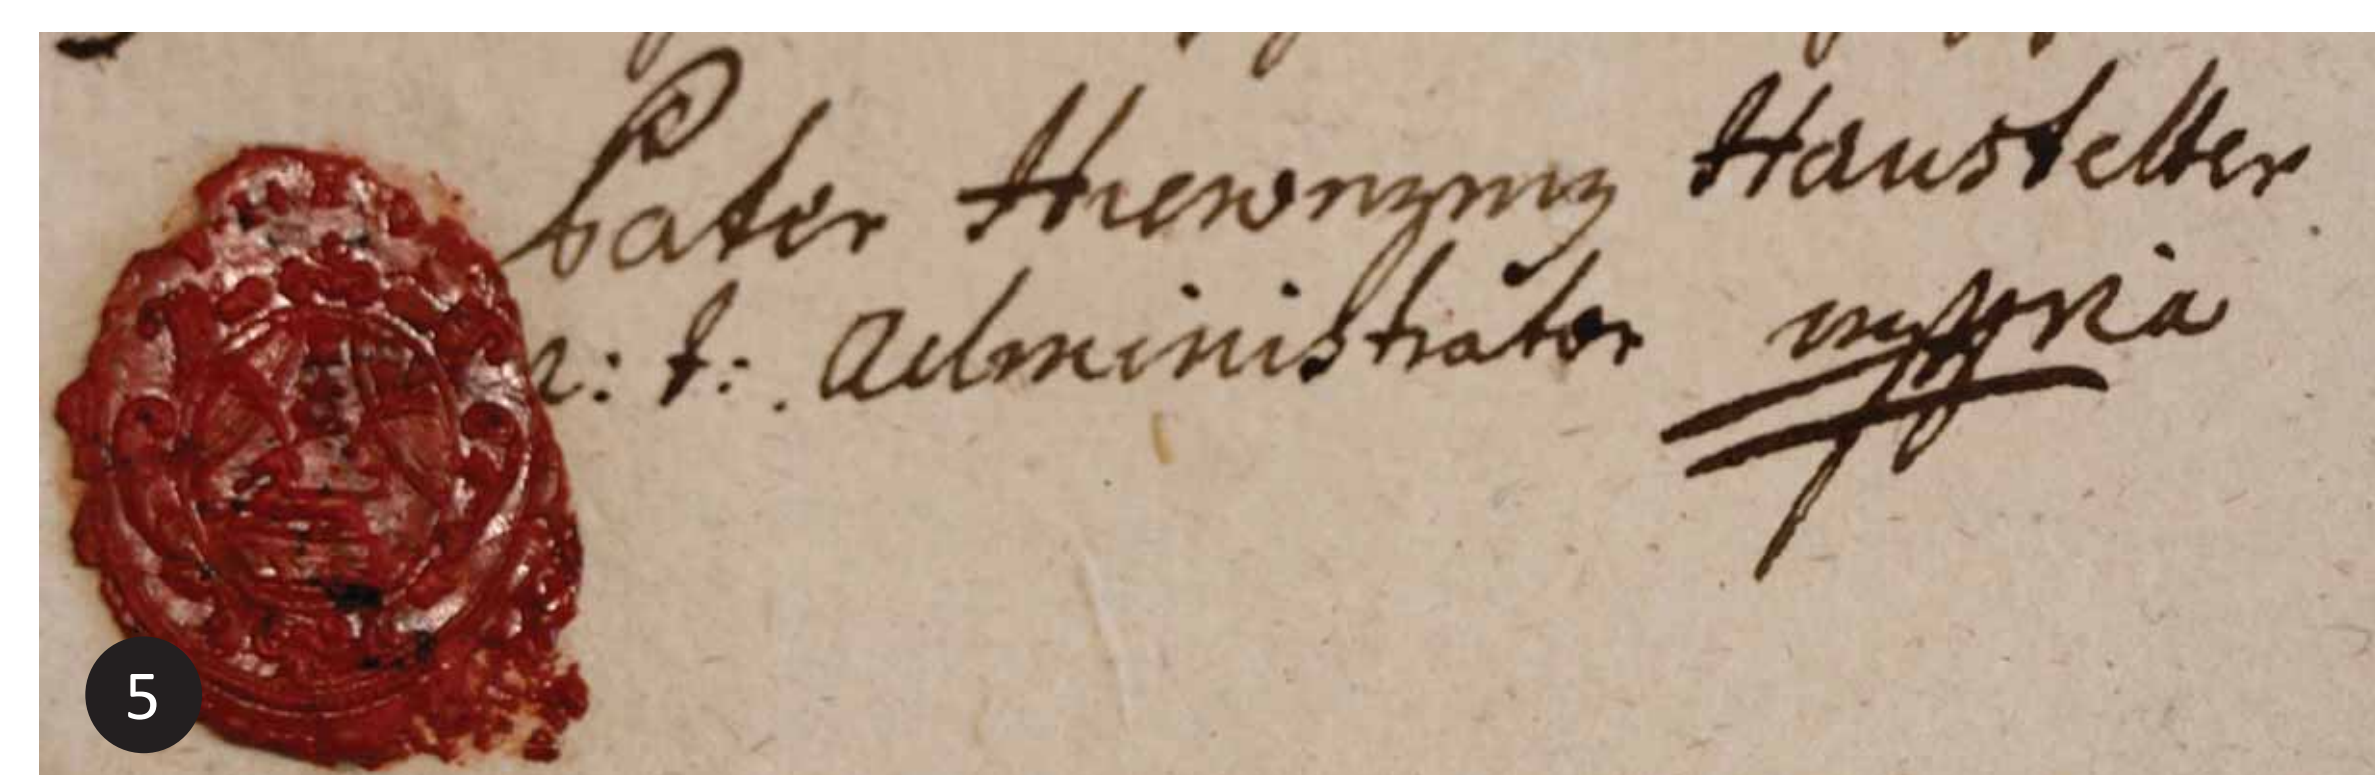 Pater Hieronymus Haustetter
p: t: Administrator mppria
5